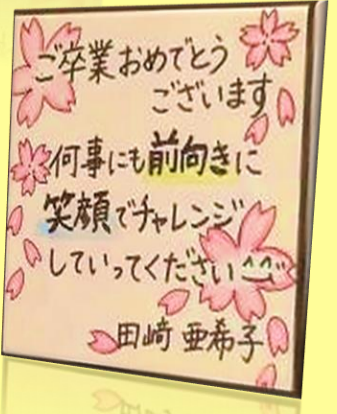 ご卒業おめでとう
ございます
何事にも前向きに
笑顔でチャレンジ
していってください^^
田崎 亜希子